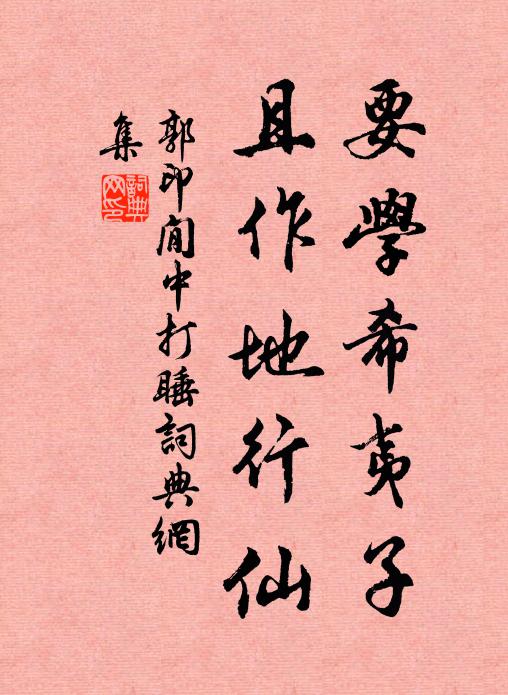 要學希夷子
且作地行仙
郭印閒中打睡詞典網
集
詞典
网印